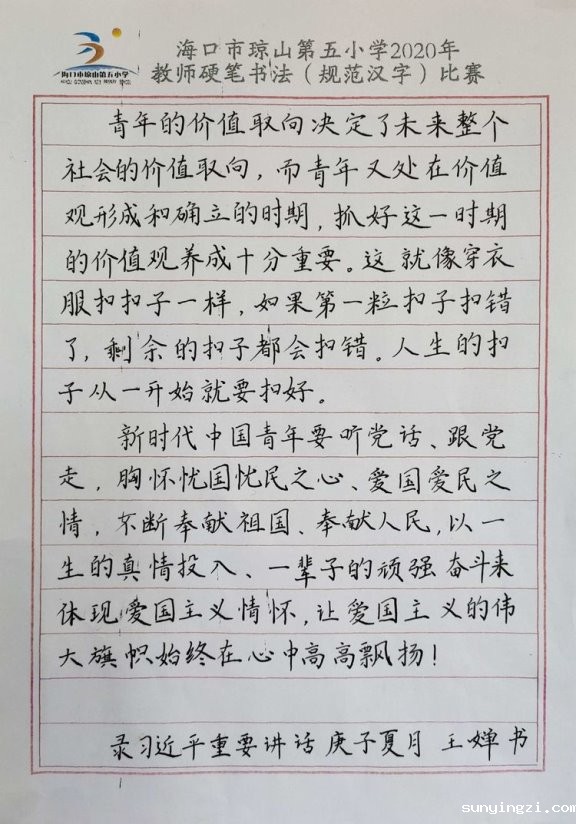 海口市琼山第五小学
海口市琼山第五小学2020年
教师硬笔书法（规范汉字）比赛
青年的价值取向决定了未来整个
社会的价值取向，而青年又处在价值
观形成和确立的时期，抓好这一时期
的价值观养成十分重要。这就像穿衣
服扣扣子一样，如果第一粒扣子扣错
了，剩余的扣子都会扣错。人生的扣
子从一开始就要扣好。
新时代中国青年要听党话、跟党
走，胸怀忧国忧民之心、爱国爱民之
情，不断奉献祖国、奉献人民，以一
生的真情投入、一辈子的顽强奋斗来
体现爱国主义情怀，让爱国主义的伟
大旗帜始终在心中高高飘扬！
录习近平重要讲话 庚子夏月 王婵书
sunyingzi.com